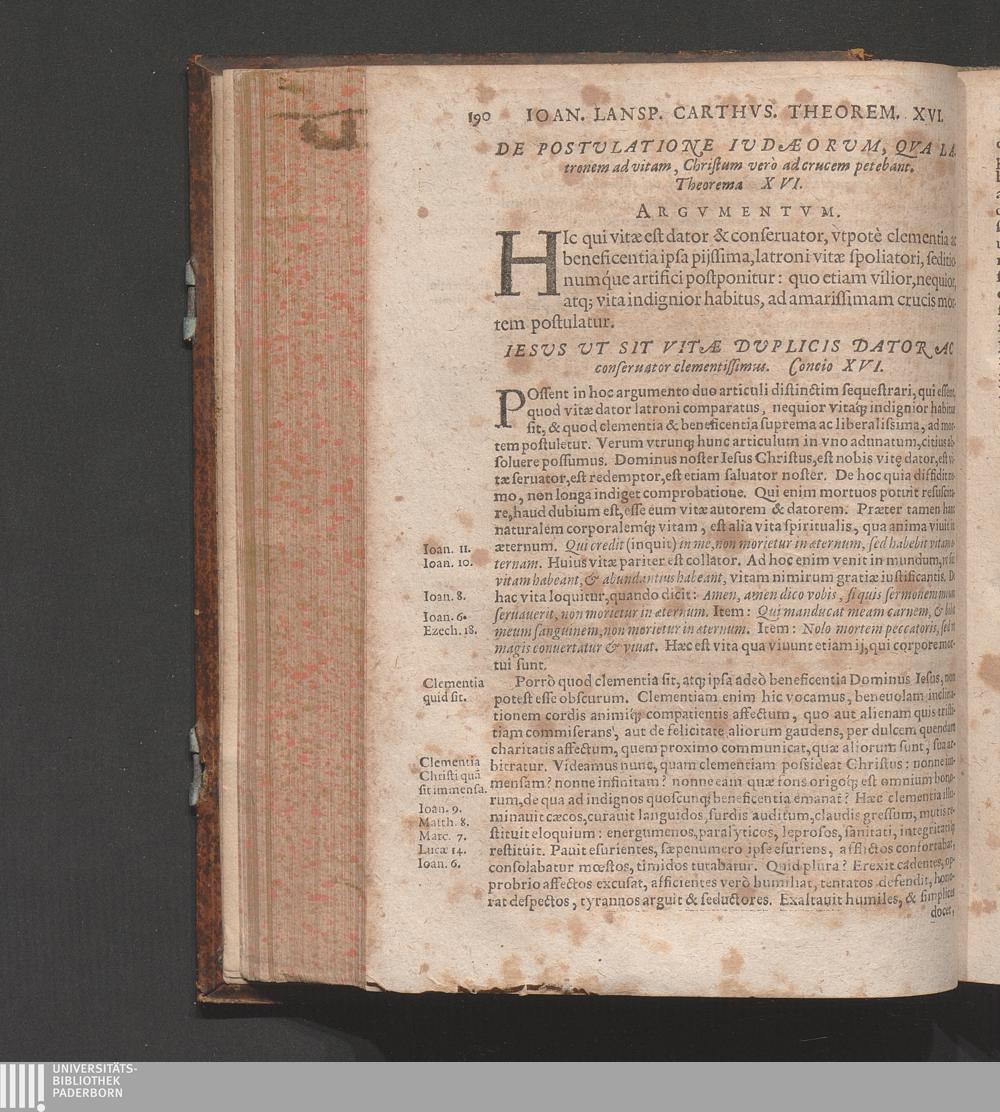 190 IOAN. LANSP. CARTHVS. THEOREM. XVI.
DE POSTVLATIONE IVDÆORVM, QVA LA-
tronem ad vitam, Christum verò ad crucem petebant.
Theorema XVI.
ARGVMENTVM.
HIc qui vitæ est dator & conseruator, vtpotè clementia ac
beneficentia ipsa pijssima, latroni vitæ spoliatori, seditio
numq́ue artifici postponitur: quo etiam vilior, nequior,
atq; vita indignior habitus, ad amarissimam crucis mor-
tem postulatur.
IESVS VT SIT VITÆ DVPLICIS DATOR AC
conseruator clementissimus. Concio XVI.
POssent in hoc argumento duo articuli distinctim sequestrari, qui essent,
quod vitæ dator latroni comparatus, nequior vitaq́; indignior habitus
sit, & quod clementia & beneficentia suprema ac liberalissima, ad mor-
tem postuletur. Verum vtrunq; hunc articulum in vno adunatum, citius ab-
soluere possumus. Dominus noster Iesus Christus, est nobis vitę dator, est vi-
tæ seruator, est redemptor, est etiam saluator noster. De hoc quia diffidit ne-
mo, non longa indiget comprobatione. Qui enim mortuos potuit resuscita-
re, haud dubium est, esse eum vitæ autorem & datorem. Præter tamen hanc
naturalem corporalemq́; vitam, est alia vita spiritualis, qua anima viuit in
Ioan. 11. æternum. Qui credit (inquit) in me, non morietur in æternum, sed habebit vitam æ-
Ioan. 10. ternam. Huius vitæ pariter est collator. Ad hoc enim venit in mundum, vt sic
vitam habeant, & abundantius habeant, vitam nimirum gratiæ iustificantis. De
Ioan. 8. hac vita loquitur, quando dicit: Amen, amen dico vobis, si quis sermonem meum
Ioan. 6. seruauerit, non morietur in æternum. Item: Qui manducat meam carnem, & bibit
Ezech. 18. meum sanguinem, non morietur in æternum. Item: Nolo mortem peccatoris, sed vt
magis conuertatur & viuat. Hæc est vita qua viuunt etiam ij, qui corpore mor-
tui sunt.
Clementia Porrò quod clementia sit, atq; ipsa adeò beneficentia Dominus Iesus, non
quid sit. potest esse obscurum. Clementiam enim hic vocamus, beneuolam inclina-
tionem cordis animiq́; compatientis affectum, quo aut alienam quis tristi-
tiam commiserans, aut de felicitate aliorum gaudens, per dulcem quendam
charitatis affectum, quem proximo communicat, quæ aliorum sunt, sua ar-
Clementia bitratur. Videamus nunc, quam clementiam possideat Christus: nonne im-
Christi quā mensam? nonne infinitam? nonne eam quæ fons origoq́; est omnium bono-
sit immensa. rum, de qua ad indignos quoscunq; beneficentia emanat? Hæc clementia illu-
Ioan. 9. minauit cæcos, curauit languidos, surdis auditum, claudis gressum, mutis re-
Matth. 8. stituit eloquium: energumenos, paralyticos, leprosos, sanitati, integritatiq́;
Marc. 7. restituit. Pauit esurientes, sæpenumero ipse esuriens, afflictos confortabat,
Lucæ 14. consolabatur mœstos, timidos tutabatur. Quid plura? Erexit cadentes, op-
Ioan. 6. probrio affectos excusat, afficientes verò humiliat, tentatos defendit, hono-
rat despectos, tyrannos arguit & seductores. Exaltauit humiles, & simplices
docet,
UNIVERSITÄTS-
BIBLIOTHEK
PADERBORN